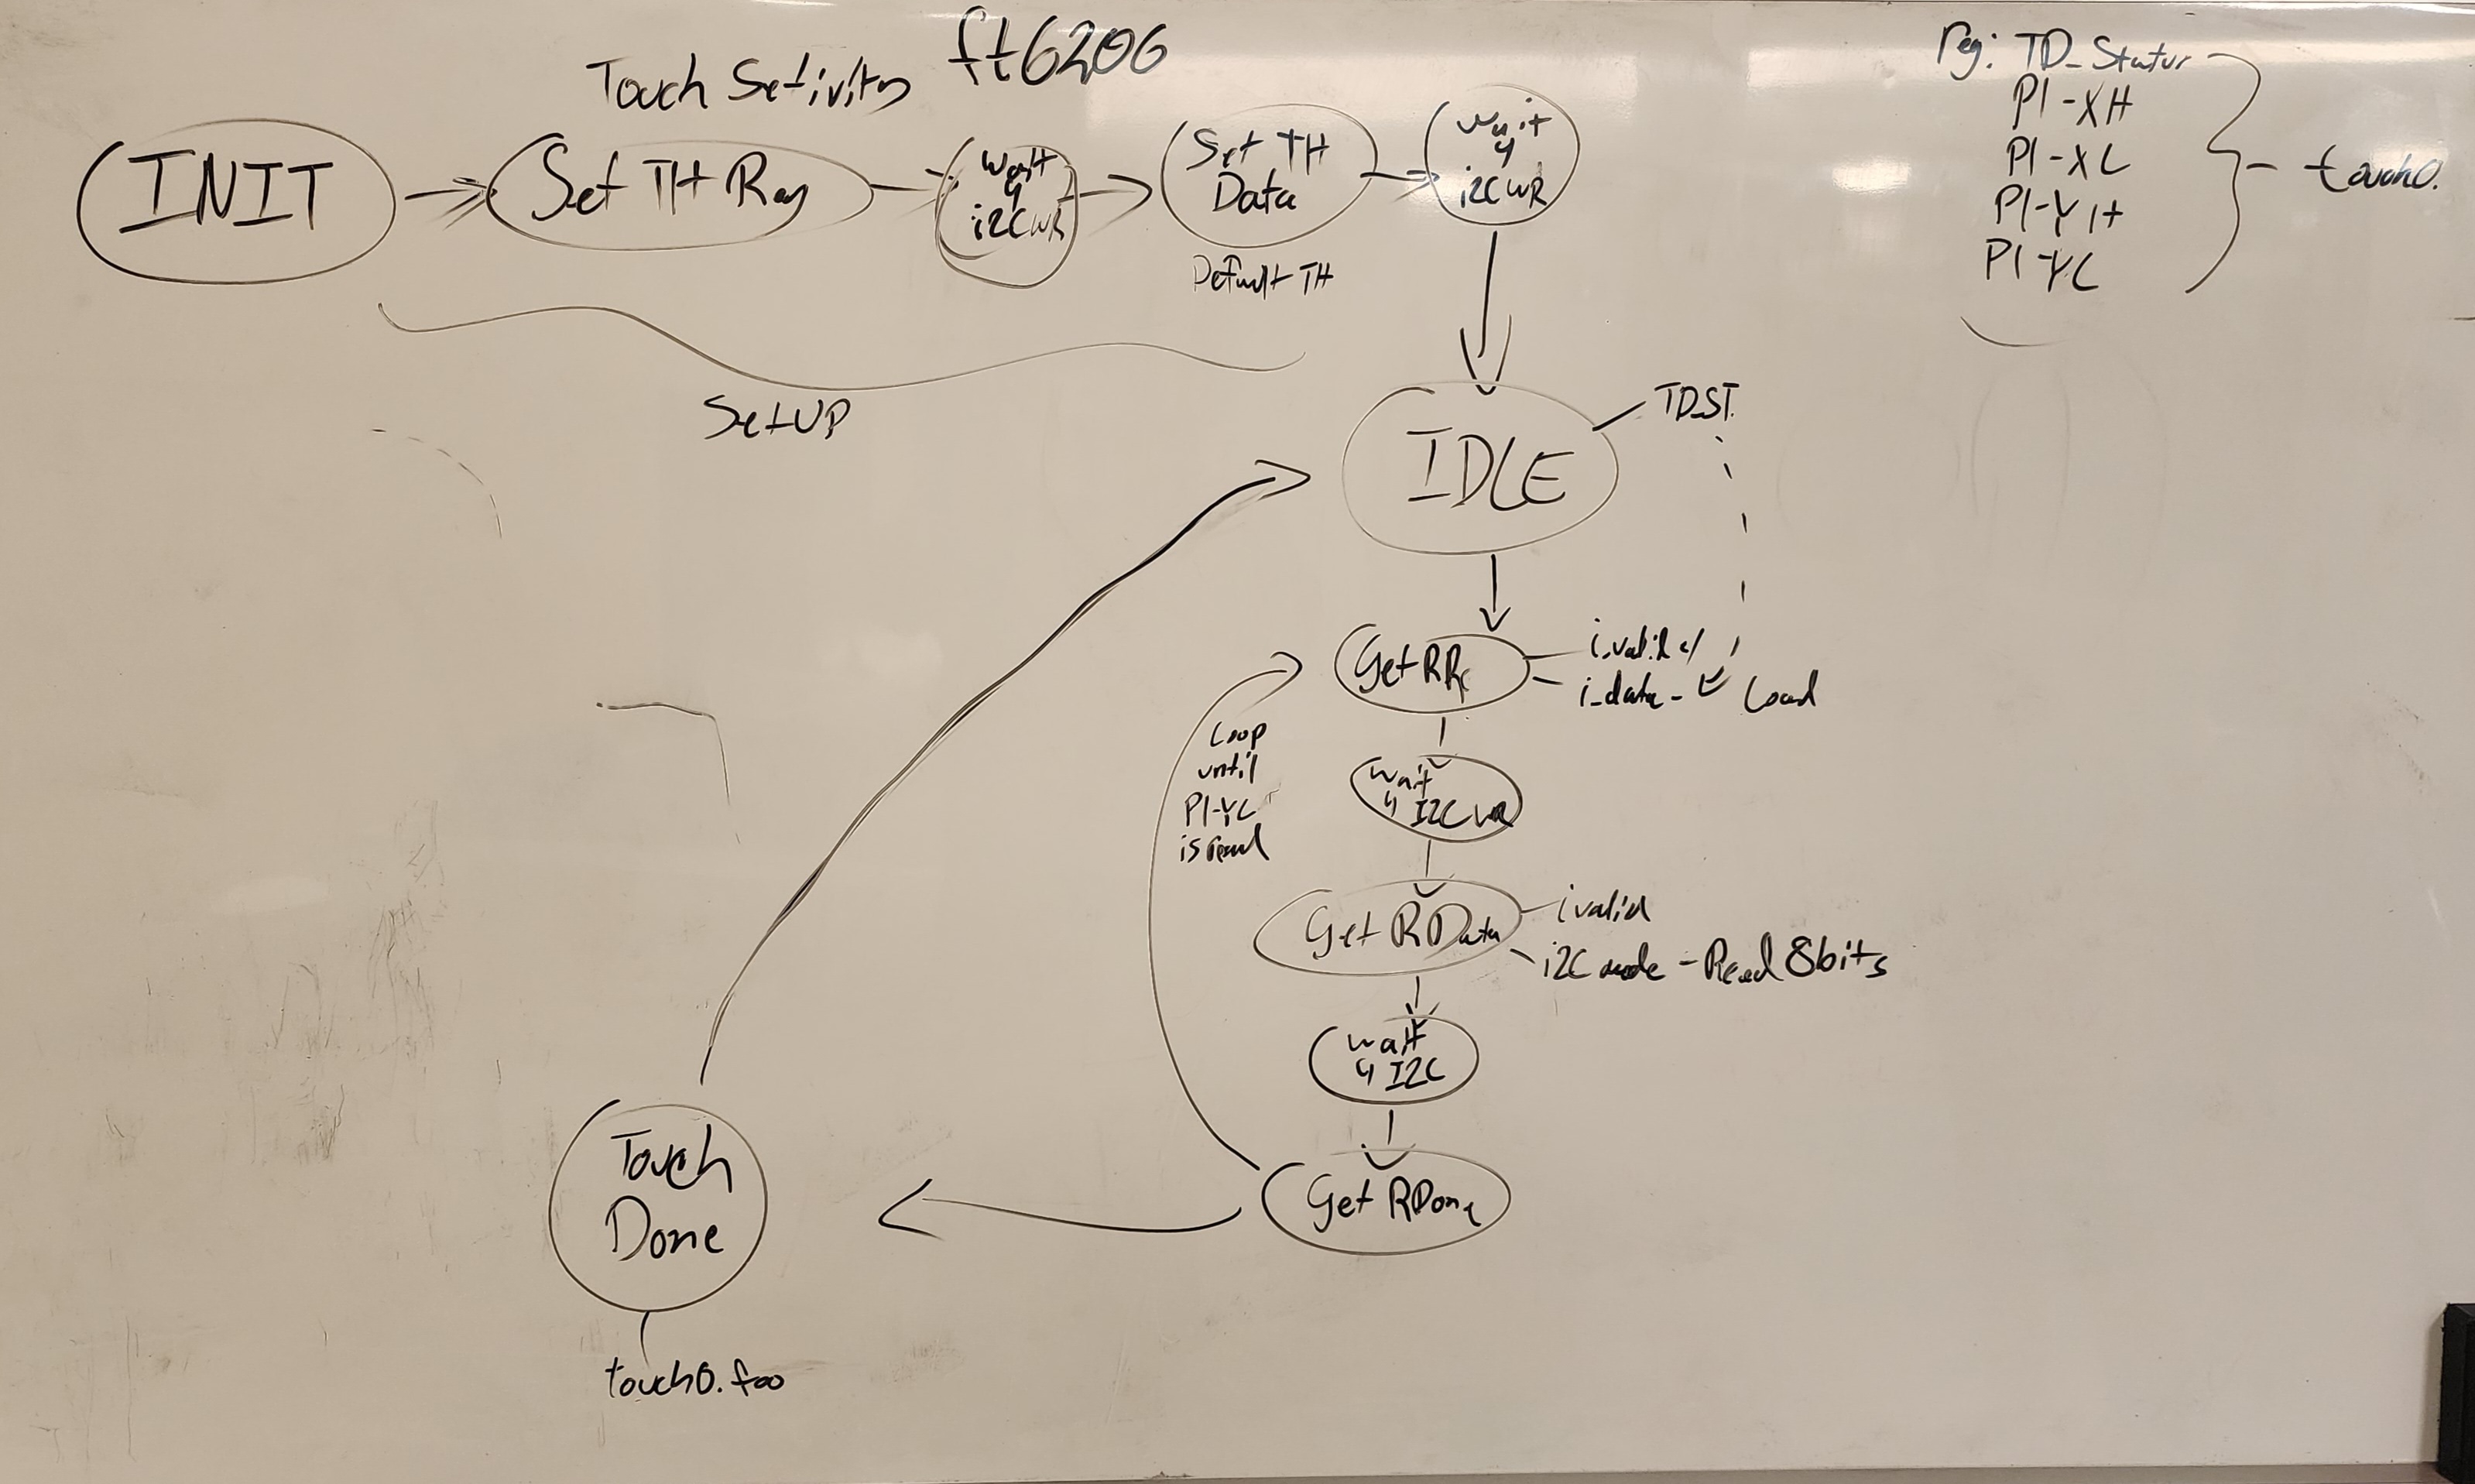 ft6206
Touch Setivity
INIT
Set TH Reg
wait
4
i2C WR
Set TH
Data
Default TH
wait
4
i2C WR
Reg: TD_Status
P1-XH
P1-XL
P1-YH
P1-YL
touch0.
SetUP
IDLE
TD_ST.
Get RR
i_valid
i_data - Load
Loop
until
P1-YL
is read
wait
4 I2C WR
Get RData
ivalid
i2C mode - Read 8bits
wait
4 I2C
Get RDone
Touch
Done
touch0.foo